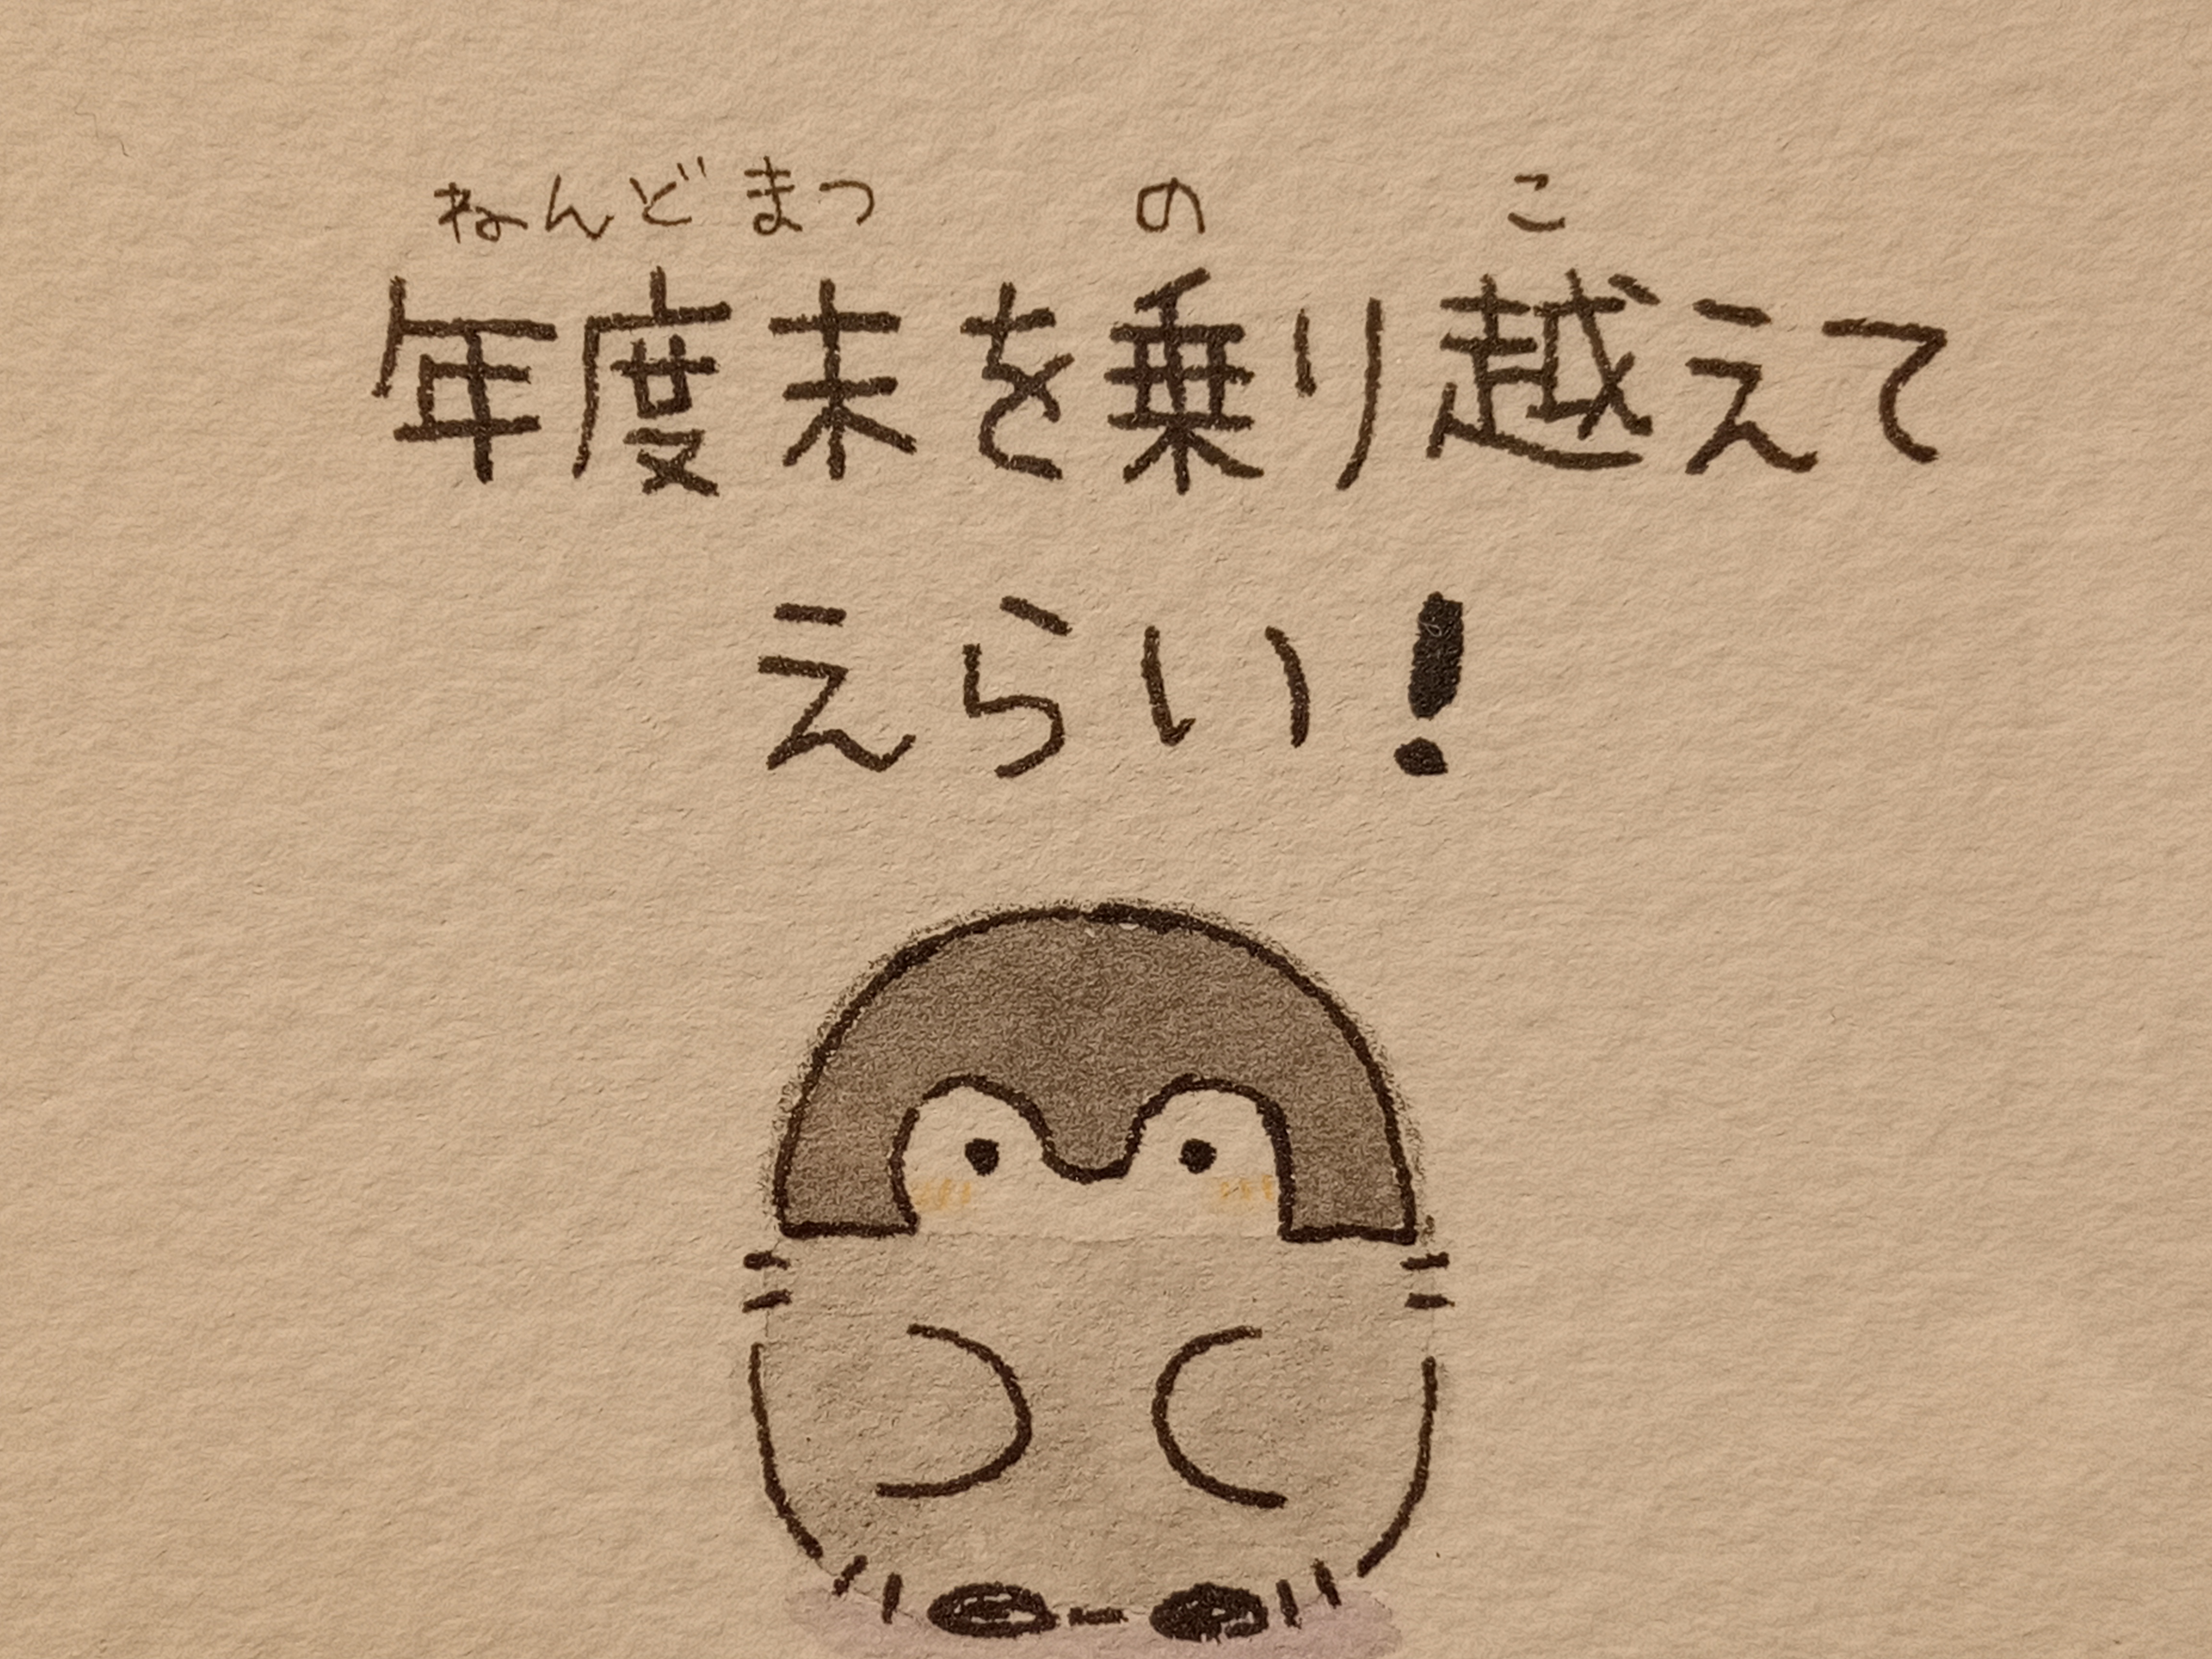 ねんどまつ の こ
年度末を乗り越えて
えらい!